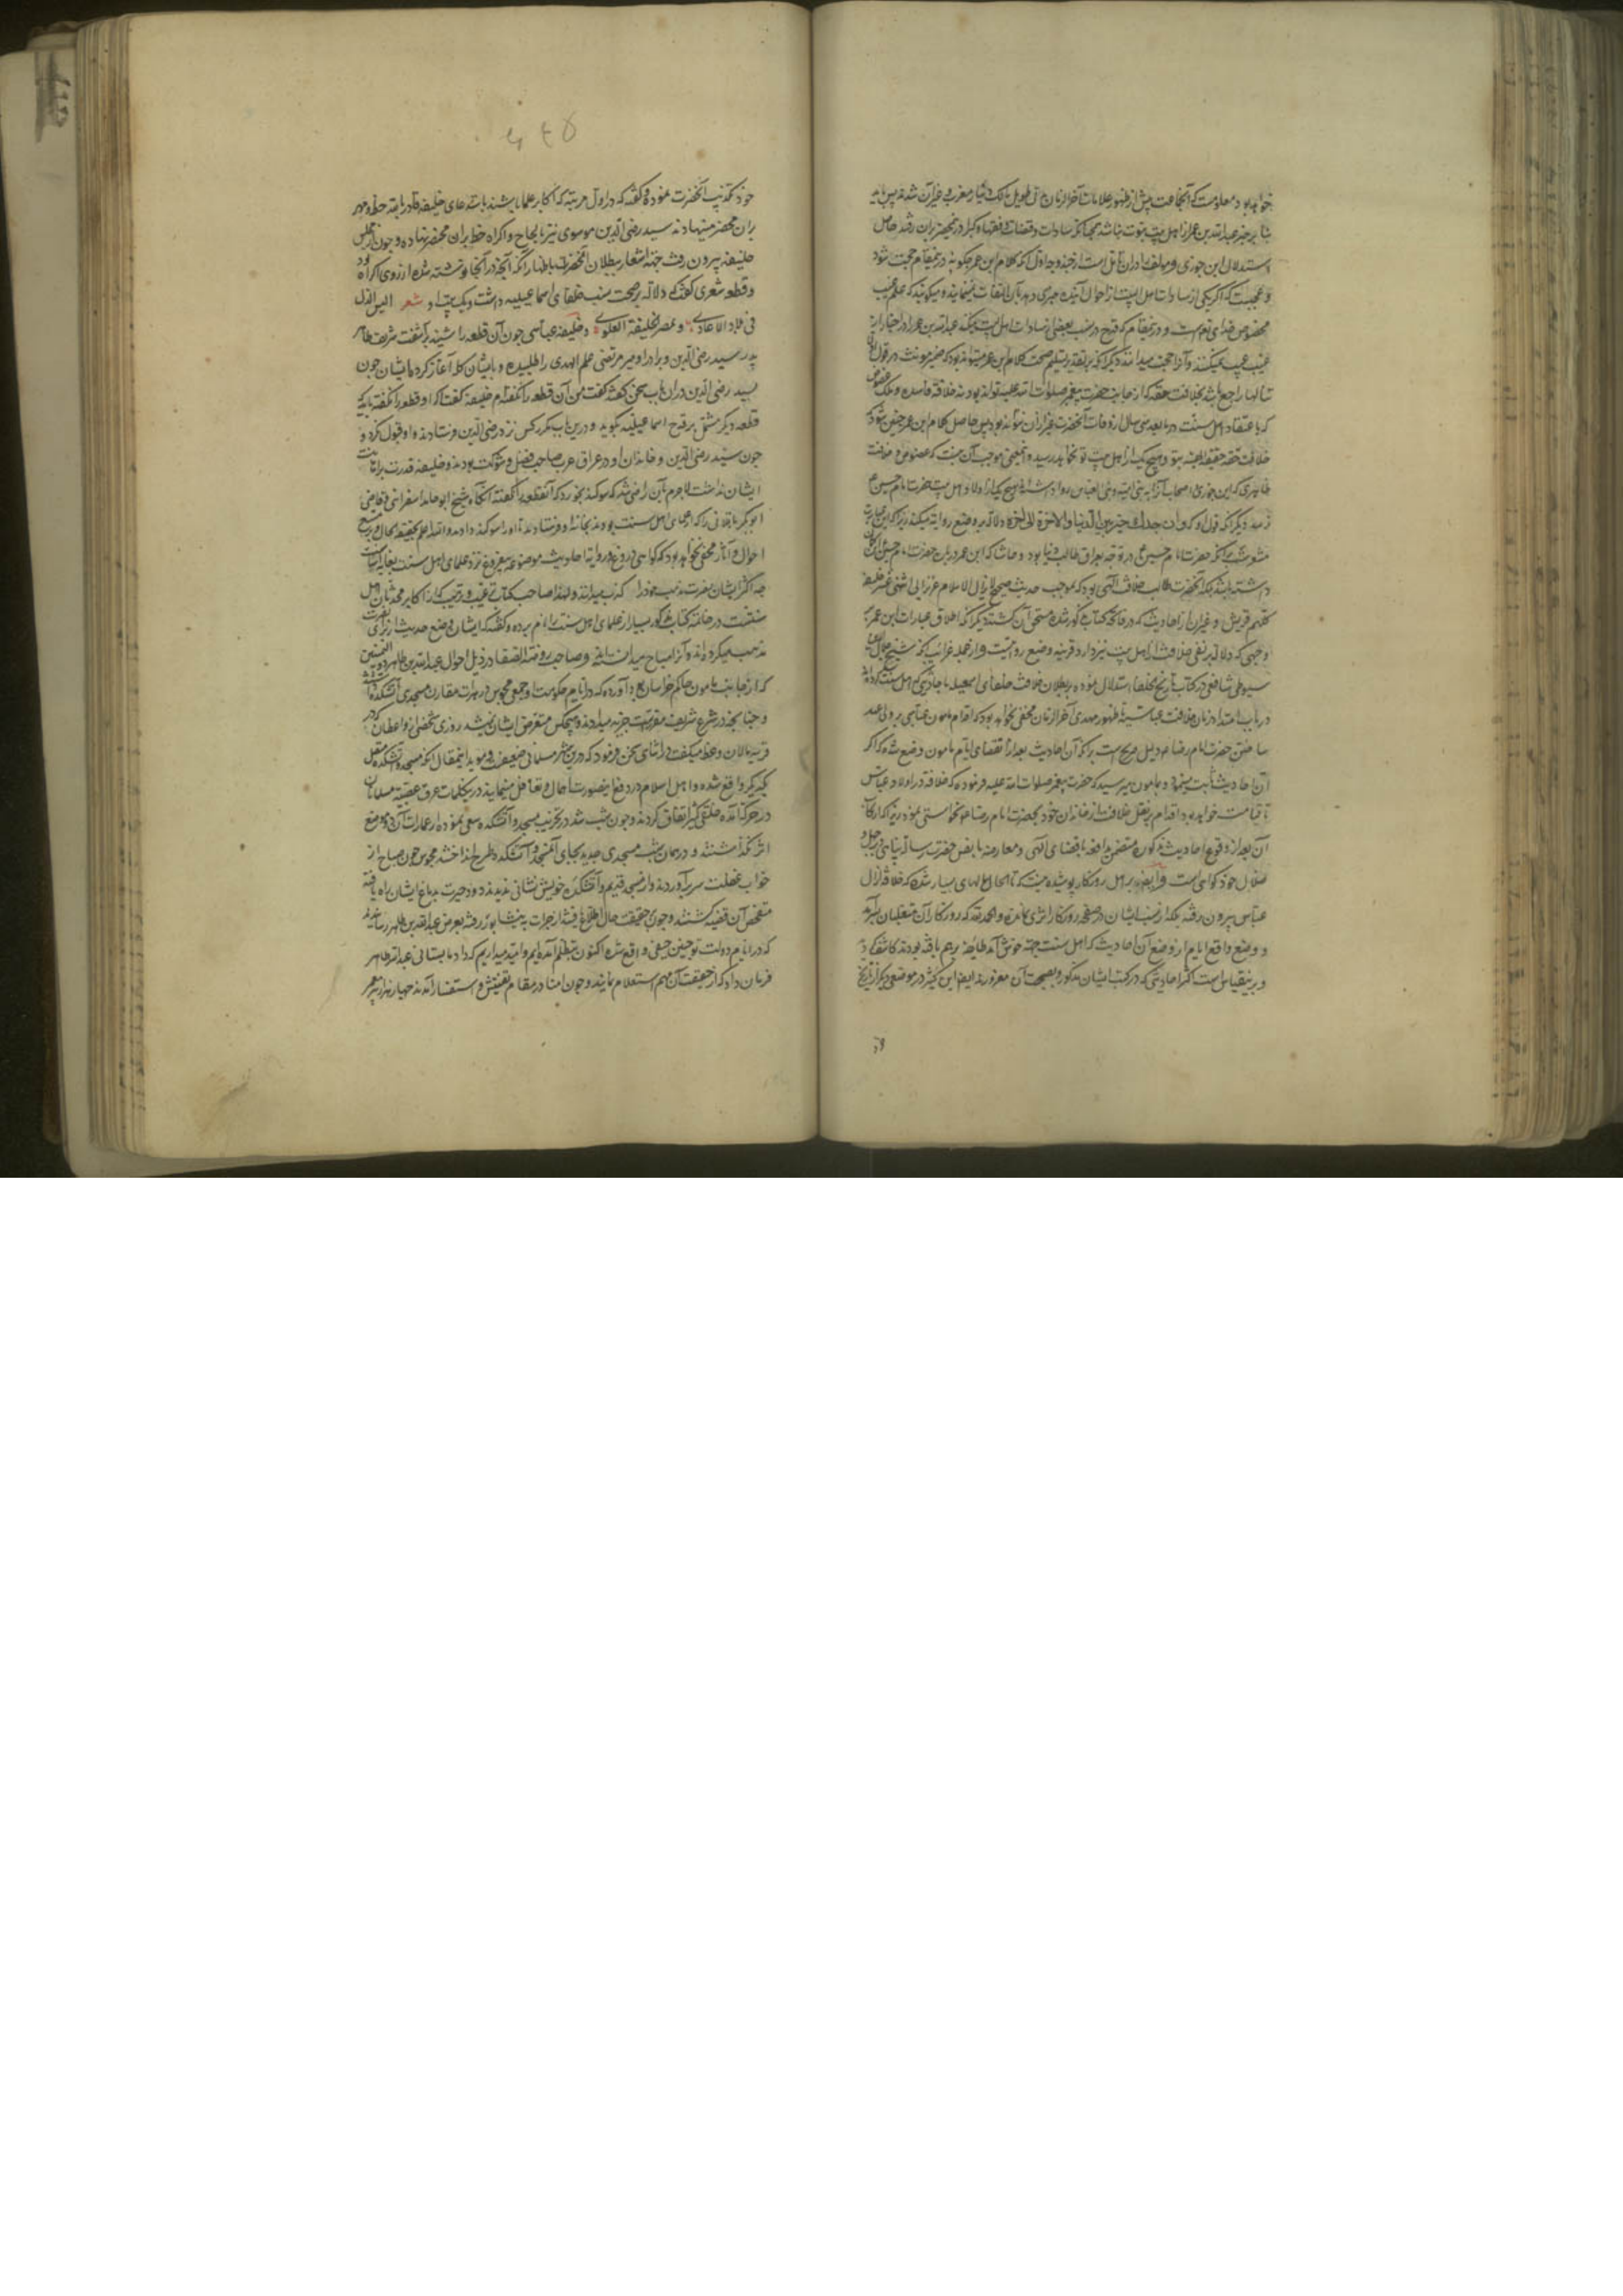 خواهد بود و معلومست که آنجماعت پیش از ظهور علامات آخر الزمان بزمانی طویل مالک دیار مغرب و غیر آن شدند پس باید
بنا بر خبر عبدالله بن عمر از اهل بیت نبوت نباشند همچنانکه سادات و قضات و فقها و کبرا در محضر بران رفته حاصل
استدلال ابن جوزی و مولف را در آن تأمل است از چند وجه اول آنکه کلام ابن عمر چگونه درینمقام حجت شود
و عجبست که اگر یکی از سادات اهل البیت از احوال آینده خبری دهد بآن التفات نمینمایند و میگویند که علم غیب
مخصوص خدای تعالی است و درینمقام که قدح در نسب بعضی از سادات اهل بیت میکند عبدالله بن عمر را در اخبار از
غیب عیب نمیکنند و آنرا حجت میدانند دیگر آنکه بر تقدیر تسلیم صحت کلام ابن عمر میتواند بود که ضمیر مونث در قول
تنالها راجع باشد بخلافت حقه که از جانب حضرت پیغمبر صلوات الله علیه تواند بود نه خلافت فاسده و ملک عضوض
که باعتقاد اهل سنت در ما بعد سی سال از وفات آنحضرت غیر از آن نتواند بود پس حاصل کلام ابن عمر چنین شود که
خلافت حقه حقیقیه بتو و هیچ یک از اهل بیت تو نخواهد رسید و اینمعنی موجب آن نیست که عضوض و خلافت
ظاهری که ابن جوزی و اصحاب او آنرا به بنی امیه و بنی العباس روا داشته‌اند بهیچ یک از اولاد اهل بیت حضرت امام حسین ع
نرسد دیگر آنکه قول او که و ان جدک خیر بین الدنیا و الاخرة الی آخره دلالت بر وضع روایت میکند زیرا که این عبارت
مشعر است بر آنکه حضرت امام حسین ع در توجه بعراق طالب دنیا بود و حاشا که ابن عمر در باره حضرت امام حسین این گمان
داشته باشد بلکه آنحضرت طالب خلافت الهی بود که بموجب حدیث صحیح لا یزال الاسلام عزیزا الی اثنی عشر خلیفة
کلهم قریش و غیر آن از احادیث که در فاتحه کتاب مذکور شده مستحق آن گشته دیگر آنکه اطلاق عبارات ابن عمر بر
وجهی که دلالت بر نفی خلافت از اهل بیت نیز دارد قرینه وضع روایتست و از جمله غرایب آنکه شیخ جلال الدین
سیوطی شافعی در کتاب تاریخ الخلفا استدلال نموده بر بطلان خلافت خلفای اسمعیلیه باحادیثی که اهل سنت کرده‌اند
در باب امتداد زمان خلافت عباسیه تا ظهور مهدی آخر الزمان و مخفی نخواهد بود که اقدام مامون عباسی بر ولی عهد
ساختن حضرت امام رضا ع دلیل صریح است بر آنکه آن احادیث بعد از انقضای ایام مامون وضع شده که اگر
آن احادیث ثابت میبود و بمامون میرسید که حضرت پیغمبر صلوات الله علیه فرموده که خلافت در اولاد عباس
تا قیامت خواهد بود اقدام بر نقل خلافت از خاندان خود بحضرت امام رضا ع نخواستی نمود زیرا که ارتکاب
آن بعد از وقوع احادیث مذکوره متضمن مدافعه با قضای الهی و معارضه با نص حضرت رسالت پناهی و بر جهل و
ضلال خود گواهی است و ایضا بر اهل روزگار پوشیده نیست که تا بحال سالهای بسیار شده که خلافت از آل
عباس بیرون رفته بلکه از نسب ایشان در صفحه روزگار اثری نمانده و الحمد لله که روزگار آن متغلبان بسر آمد
و وضع واقع ایام از وضع آن احادیث که اهل سنت جهة خوش آمد طایفه بر هم بافته بودند کاشف گردید
و برینقیاس است اکثر احادیثی که در کتب ایشان مذکور و بصحت آن مغرورند ایضا ابن کثیر در موضعی دیگر از تاریخ
خود تکذیب آنحضرت نموده و گفته که در اول مرتبه که اکابر علما باستدعای خلیفه قادر بالله خط و مهر
بران محضر مینهادند سید رضی الدین موسوی نیز بالحاح و اکراه خط بران محضر نهاده و چون از مجلس
خلیفه بیرون رفت جهة اشعار ببطلان آنحضرت باظهار آنکه آنچه در آنجا نوشته شده از روی اکراه بود
دو قطعه شعری گفت که دلالت بر صحت نسب خلفای اسماعیلیه داشت و یک بیت او شعر البس الذل
فی بلاد الاعادی و بمصر الخلیفة العلوی و خلیفه عباسی چون آن قطعه را شنید برآشفت شریف طاهر
پدر سید رضی الدین و برادر او میر مرتضی علم الهدی را طلبیده و با ایشان گله آغاز کرد با ایشان چون
سید رضی الدین در ان باب سخن گفتند گفت من آن قطعه را نگفته‌ام خلیفه گفت اگر او قطعه را نگفته باید که
قطعه دیگر مشتمل بر قدح اسماعیلیه بگوید و درین باب مکرر کس نزد رضی الدین فرستادند و او قبول نکرد و
چون سید رضی الدین و خاندان او در عراق عرب صاحب فضل و شوکت بودند و خلیفه قدرت بر اهانت
ایشان نداشت لاجرم بآن راضی شد که سوگند بخورد که آنقطعه را نگفته آنگاه شیخ ابو حامد اسفراینی و قاضی
ابو بکر باقلانی را که از علمای اهل سنت بودند بخانه او فرستادند تا او را سوگند دادند و الله اعلم بحقیقة الحال و بر متتبع
احوال و آثار مخفی نخواهد بود که گواهی دروغ و روایة احادیث موضوعه بیفروغ نزد علمای اهل سنت بغایت آسانست
چه اکثر ایشان نصرت مذهب خود را بکذب میدانند و لهذا صاحب کتاب ترغیب و ترهیب که از اکابر محدثان اهل
سنتست در خاتمه کتاب مذکور بسیار از علمای اهل سنت را نام برده و گفته که ایشان وضع حدیث از برای نصرت
مذهب میکرده‌اند و آنرا مباح میدانسته‌اند و صاحب روضة الصفا در ذیل احوال عبدالله بن طاهر ذو الیمینین
که از جانب مامون حاکم خراسان بود آورده که در ایام حکومت او جمعی مجوس در هرات مقارن مسجدی آتشکده داشتند
و چنانچه در شرع شریف مقررست جزیه میدادند و هیچکس متعرض ایشان نمیشد روزی شخصی از واعظان که در
قریه مالان وعظ میگفت در اثنای سخن فرمود که درین شهر مسلمانی ضعیفست و موید اینمقال آنکه مسجد و آتشکده متصل
یکدیگر واقع شده و اهل اسلام در دفع اینصورت اهمال و تغافل مینمایند ازین کلمات عرق عصبیت مسلمانان
در حرکت آمده خلقی کثیر اتفاق کردند و چون شب شد در تخریب مسجد و آتشکده سعی نموده از عمارات آن دو موضع
اثر نگذاشتند و در همان شب مسجدی جدید بجای آن مسجد و آتشکده طرح انداختند مجوس چون صباح از
خواب غفلت سر برآوردند و از مسجد قدیم و آتشکده خویش نشانی ندیدند دود حیرت بدماغ ایشان راه یافته
متفحص آن قضیه گشتند و چون بر حقیقت حال اطلاع یافتند از هرات به نیشابور رفته بعرض عبدالله بن طاهر رسانیدند
که در ایام دولت تو چنین حیفی واقع شده اکنون بتظلم آمده‌ایم و امید میداریم که داد ما بستانی عبدالله طاهر
فرمان داد که از حقیقت آن مهم استعلام نمایند و چون امنا در مقام تفتیش و استفسار آمدند چهار هزار پیر معمر